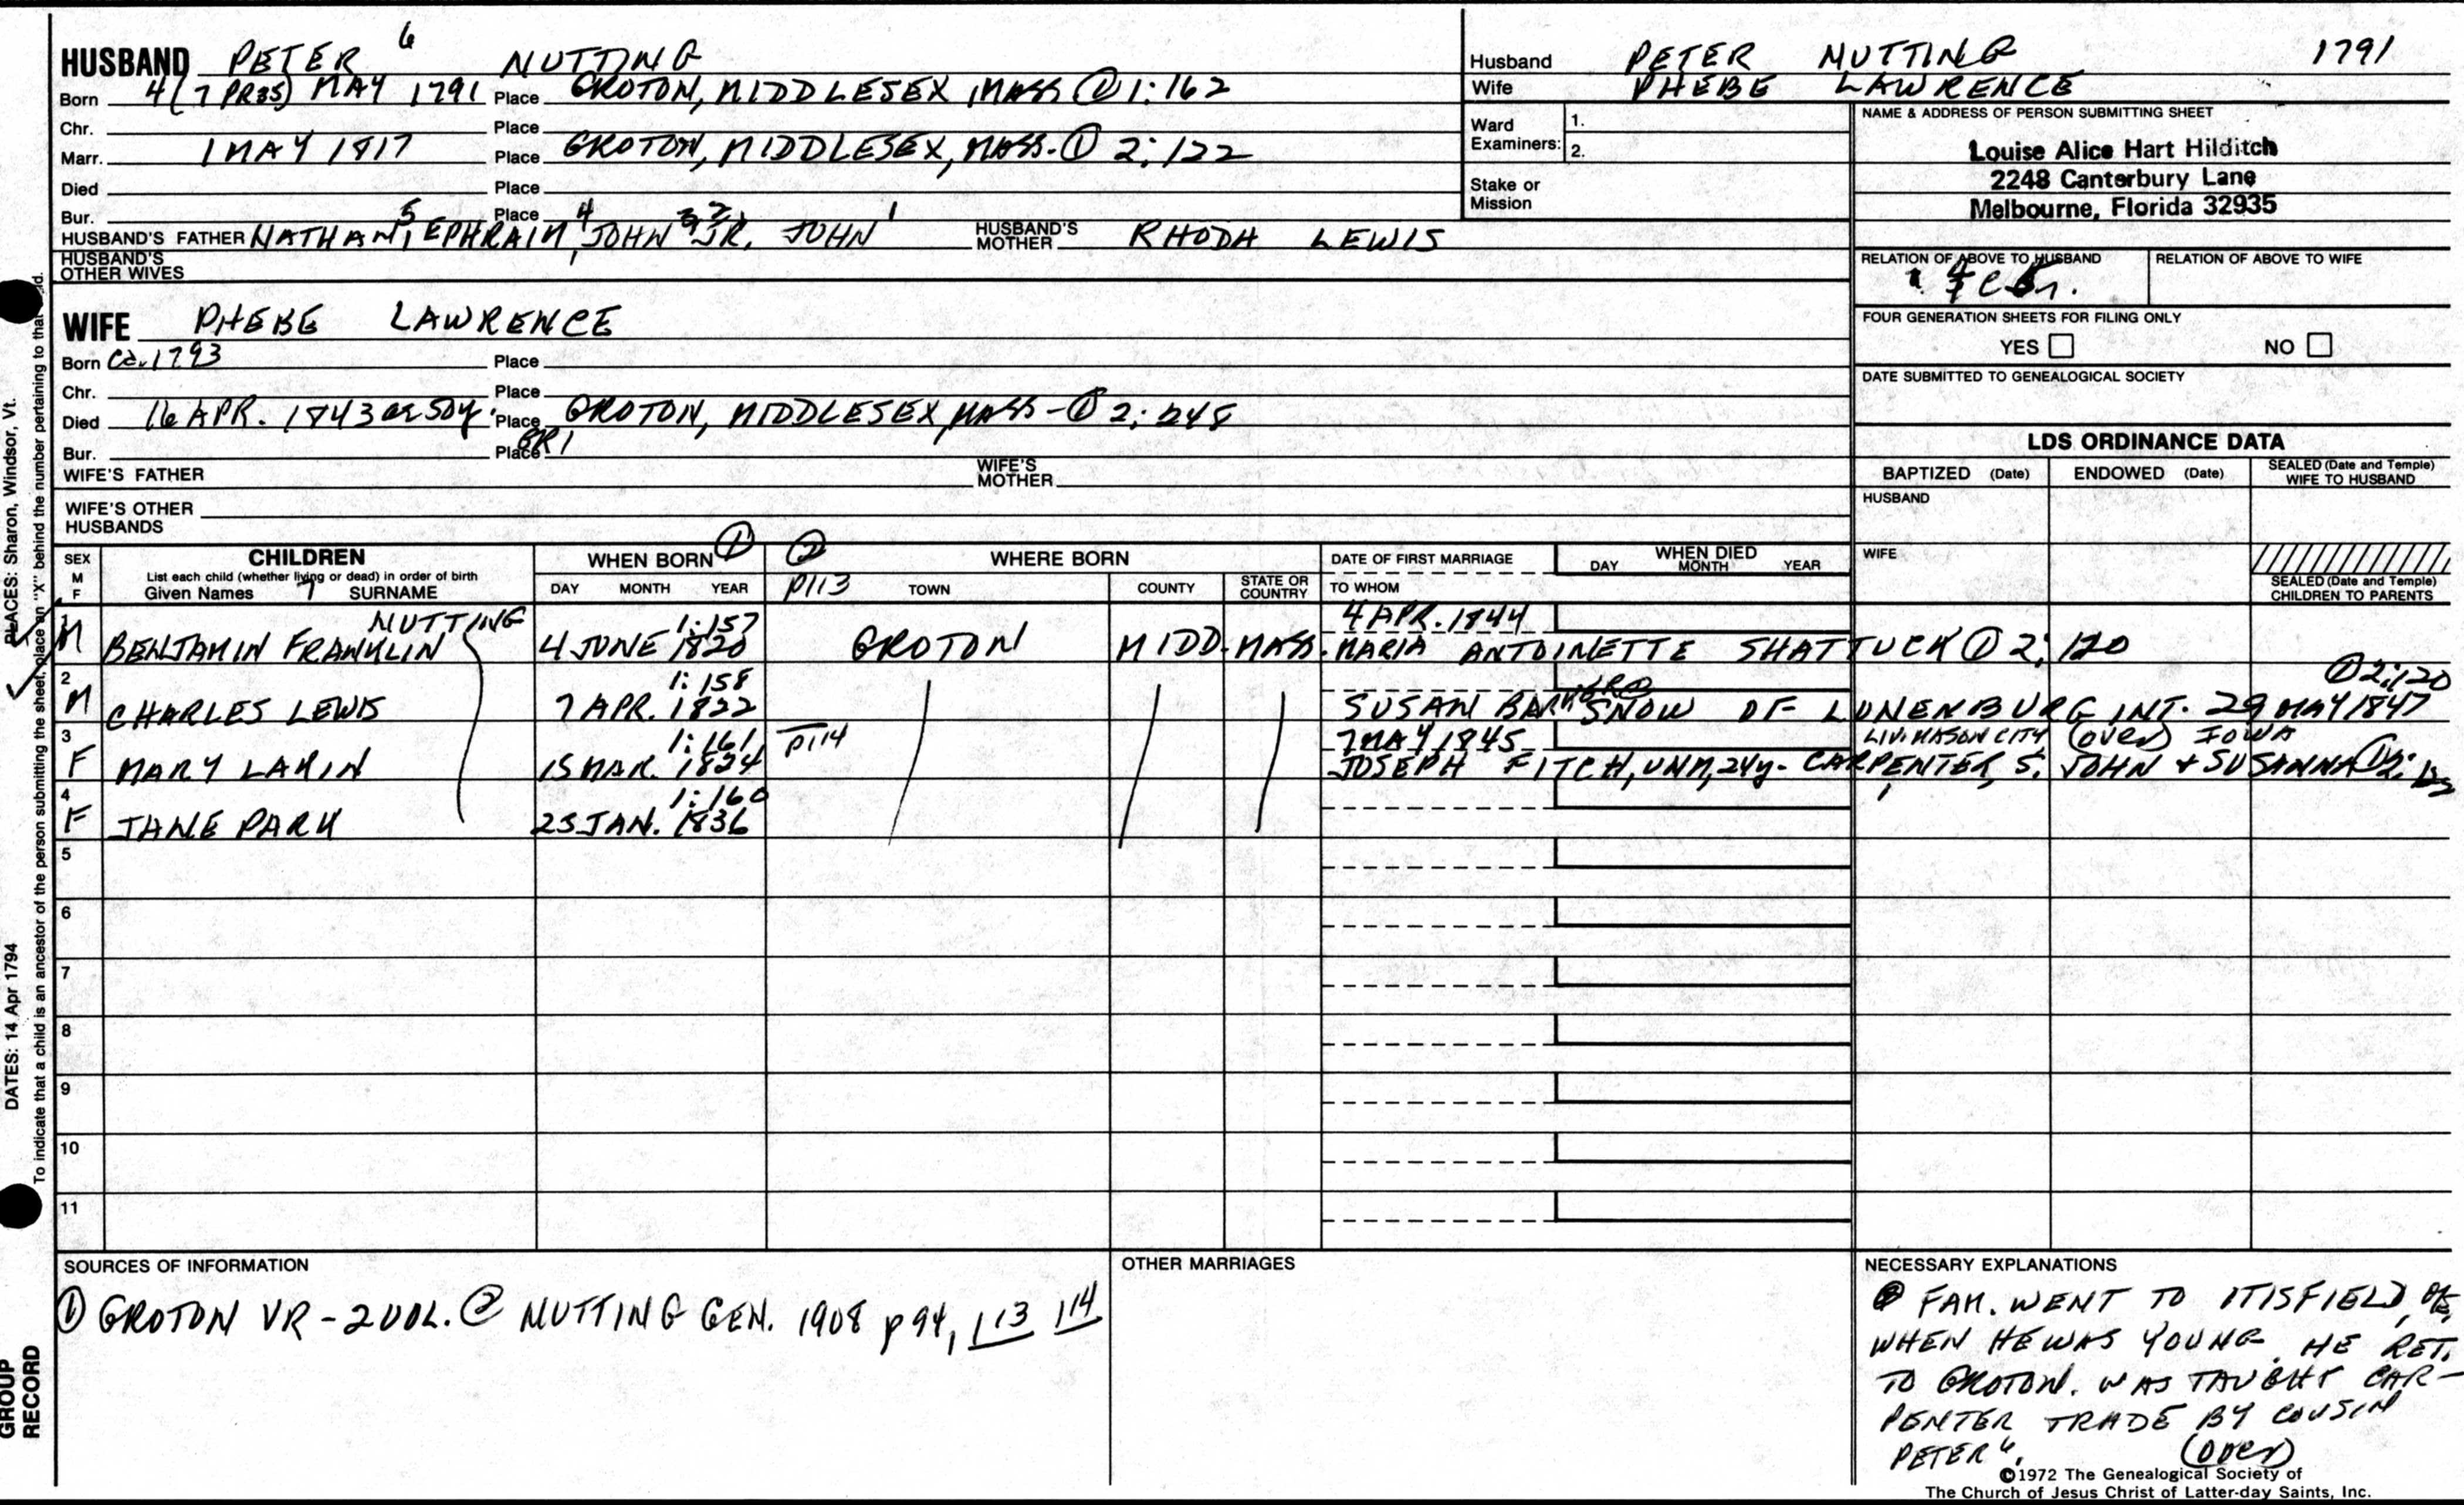 HUSBAND PETER 6 NUTTING
Born 4 (7 PR35) MAY 1791 Place GROTON, MIDDLESEX, MASS ① 1:162
Chr. Place
Marr. 1 MAY 1817 Place GROTON, MIDDLESEX, MASS. ① 2:122
Died Place
Bur. Place
HUSBAND'S FATHER NATHAN 5, EPHRAIM 4, JOHN 3 2 JR. JOHN 1 HUSBAND'S MOTHER RHODA LEWIS
HUSBAND'S OTHER WIVES
WIFE PHEBE LAWRENCE
Born Ca. 1793 Place
Chr. Place
Died 16 APR. 1843 ae 50y. Place GROTON, MIDDLESEX, MASS - ① 2:248
Bur. Place GR1
WIFE'S FATHER WIFE'S MOTHER
WIFE'S OTHER HUSBANDS
Husband PETER NUTTING 1791
Wife PHEBE LAWRENCE
Ward Examiners: 1. 2.
Stake or Mission
NAME & ADDRESS OF PERSON SUBMITTING SHEET
Louise Alice Hart Hilditch
2248 Canterbury Lane
Melbourne, Florida 32935
RELATION OF ABOVE TO HUSBAND RELATION OF ABOVE TO WIFE
FOUR GENERATION SHEETS FOR FILING ONLY
YES NO
DATE SUBMITTED TO GENEALOGICAL SOCIETY
LDS ORDINANCE DATA
BAPTIZED (Date) ENDOWED (Date) SEALED (Date and Temple) WIFE TO HUSBAND
HUSBAND
WIFE
SEALED (Date and Temple) CHILDREN TO PARENTS
SEX M F
CHILDREN
List each child (whether living or dead) in order of birth
Given Names 7 SURNAME
WHEN BORN ①
DAY MONTH YEAR
② WHERE BORN
P113 TOWN COUNTY STATE OR COUNTRY
DATE OF FIRST MARRIAGE
TO WHOM
WHEN DIED
DAY MONTH YEAR
NUTTING 1:157 4 APR. 1844
M BENJAMIN FRANKLIN 4 JUNE 1820 GROTON MIDD. MASS. MARIA ANTOINETTE SHATTUCK ① 2:120
2 1:158 ① 2:120
M CHARLES LEWIS 7 APR. 1822 SUSAN SNOW OF LUNENBURG INT. 29 MAY 1847
3 1:161 P114 7 MAY 1845 LIV. MASON CITY (over) IOWA
F MARY LAKIN 15 MAR. 1824 JOSEPH FITCH, UNM, 24y - CARPENTER, S. JOHN & SUSANNA ① 2:
4 1:160
F JANE PARK 23 JAN. 1836
5
6
7
8
9
10
11
SOURCES OF INFORMATION
① GROTON VR - 2 VOL. ② NUTTING GEN. 1908 p 94, 113 114
OTHER MARRIAGES
NECESSARY EXPLANATIONS
② FAM. WENT TO OTISFIELD,
WHEN HE WAS YOUNG. HE RET.
TO GROTON. WAS TAUGHT CAR-
PENTER TRADE BY COUSIN
PETER 6. (over)
©1972 The Genealogical Society of
The Church of Jesus Christ of Latter-day Saints, Inc.
PLACES: Sharon, Windsor, Vt.
DATES: 14 Apr 1794
To indicate that a child is an ancestor of the person submitting the sheet, place an "X" behind the number pertaining to that
GROUP
RECORD